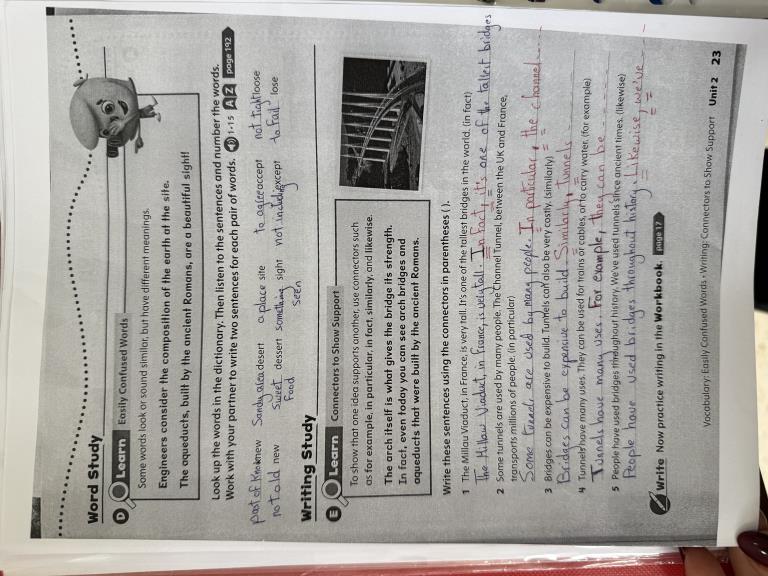 Word Study
D Learn Easily Confused Words
Some words look or sound similar, but have different meanings.
Engineers consider the composition of the earth at the site.
The aqueducts, built by the ancient Romans, are a beautiful sight!
Look up the words in the dictionary. Then listen to the sentences and number the words.
Work with your partner to write two sentences for each pair of words. 1·15 A Z page 192
past of know knew Sandy area desert a place site to agree accept not tight loose
not old new sweet food dessert something seen sight not including except to fail lose
Writing Study
E Learn Connectors to Show Support
To show that one idea supports another, use connectors such
as for example, in particular, in fact, similarly, and likewise.
The arch itself is what gives the bridge its strength.
In fact, even today you can see arch bridges and
aqueducts that were built by the ancient Romans.
Write these sentences using the connectors in parentheses ( ).
1 The Millau Viaduct, in France, is very tall. It's one of the tallest bridges in the world. (in fact)
The Millau Viaduct, in France, is very tall. In fact, it's one of the tallest bridges
2 Some tunnels are used by many people. The Channel Tunnel, between the UK and France,
transports millions of people. (in particular)
Some tunnels are used by many people. In particular, the channel
3 Bridges can be expensive to build. Tunnels can also be very costly. (similarly)
Bridges can be expensive to build. Similarly, tunnels
4 Tunnels have many uses. They can be used for trains or cables, or to carry water. (for example)
Tunnels have many uses. For example, they can be
5 People have used bridges throughout history. We've used tunnels since ancient times. (likewise)
People have used bridges throughout history. Likewise, we've
Write Now practice writing in the Workbook. page 17
Vocabulary: Easily Confused Words • Writing: Connectors to Show Support Unit 2 23